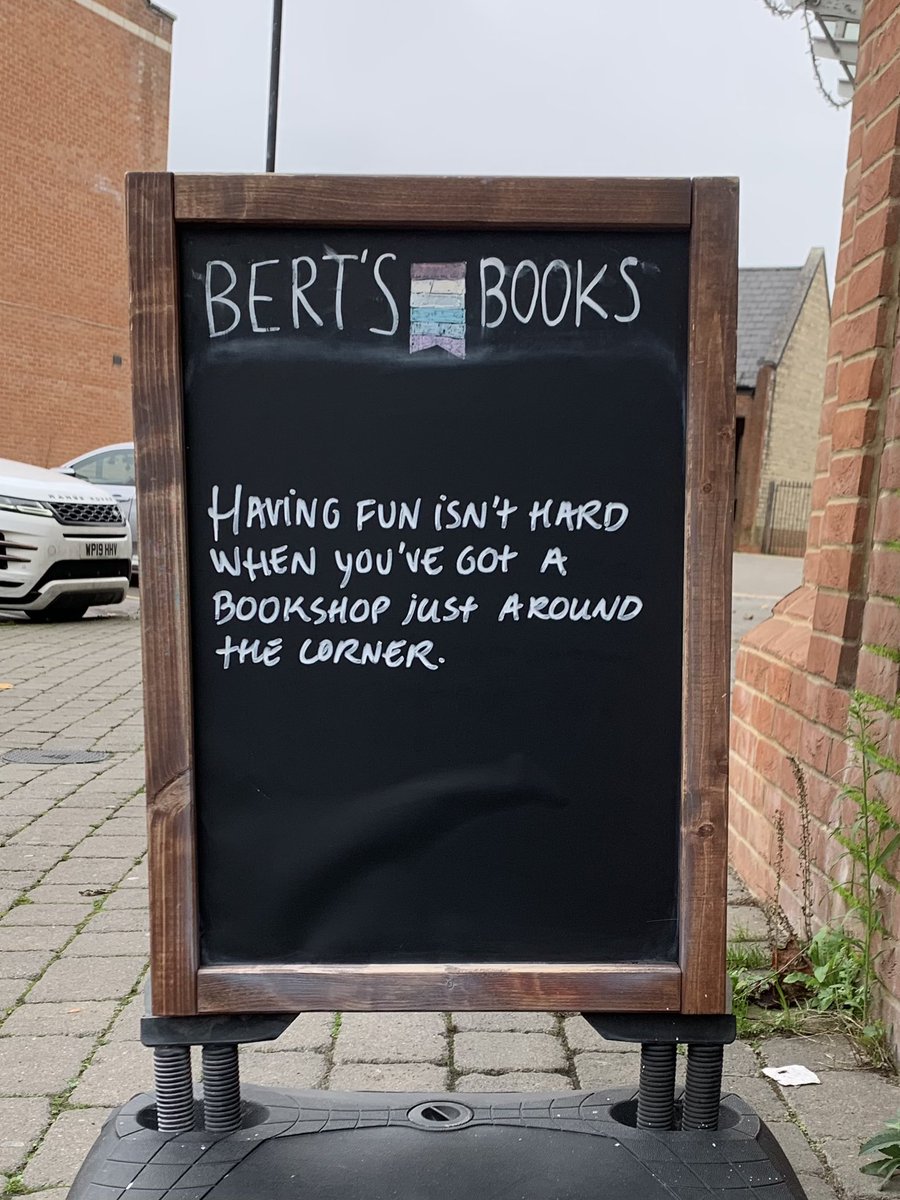 BERT'S BOOKS
HAVING FUN ISN'T HARD
WHEN YOU'VE GOT A
BOOKSHOP JUST AROUND
THE CORNER.
RANGE ROVER
WP19 HHV